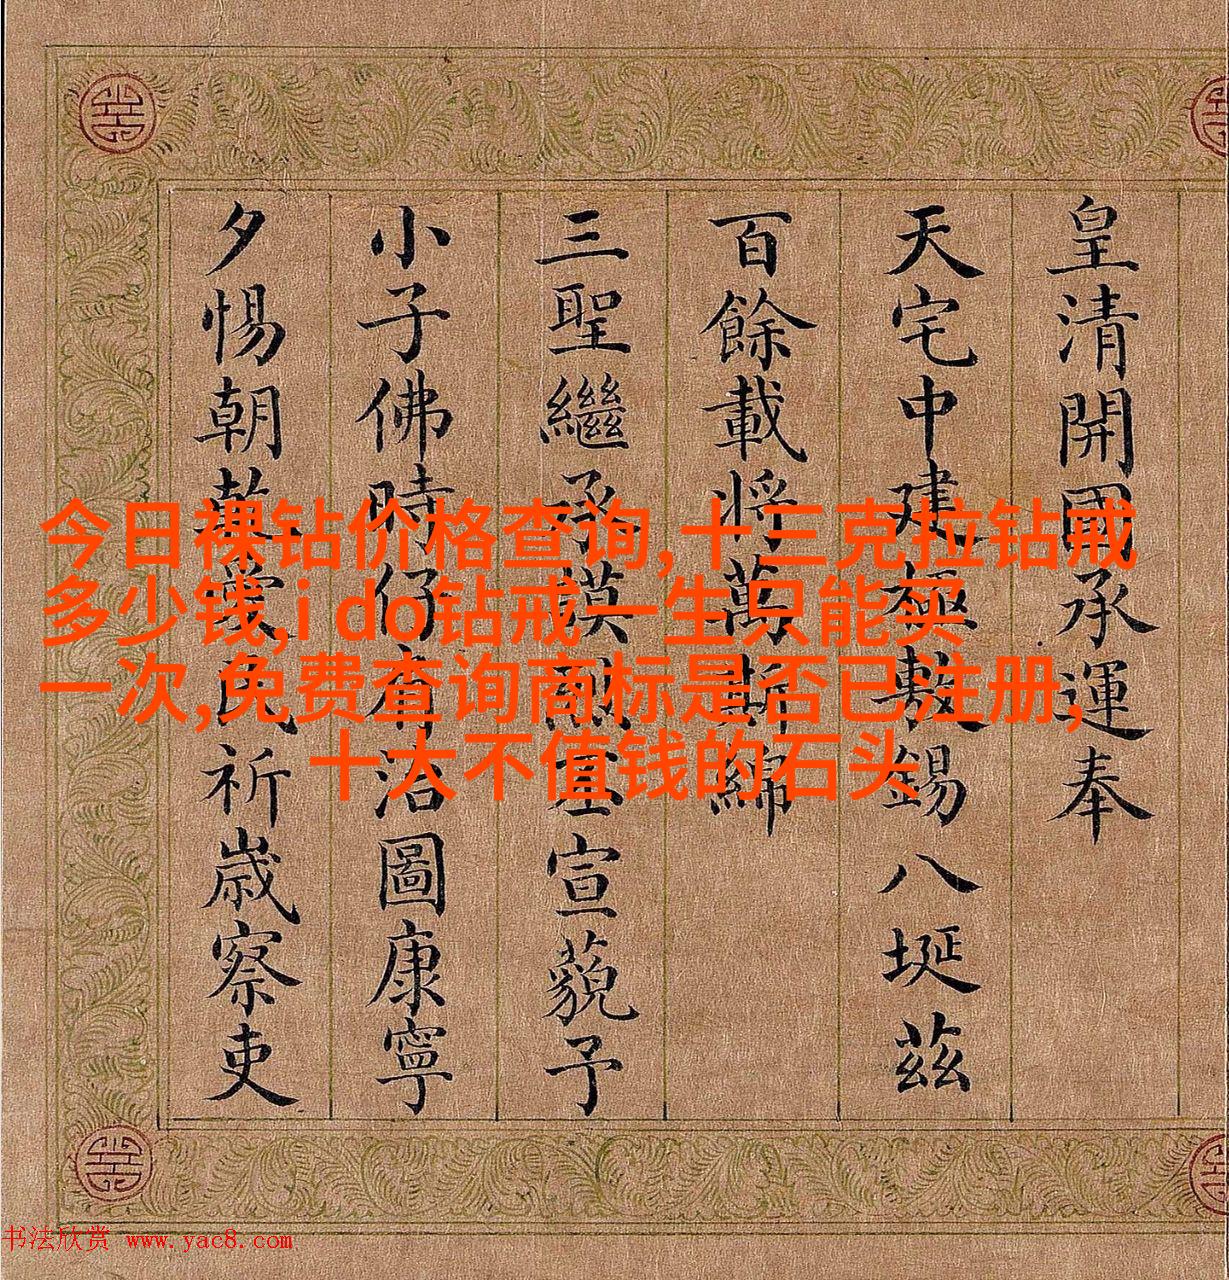 皇清開國承運奉
天宅中建極敷錫八埏茲
百餘載將萬斯綿
三聖繼承模烈丕宣藐予
小子佛時仔肩洽圖康寧
夕惕朝乾愛民祈歲察吏
今日裸钻价格查询,十三克拉钻戒
多少钱,i do钻戒一生只能买
一次,免费查询商标是否已注册,
十大不值钱的石头
书法欣赏 www.yac8.com